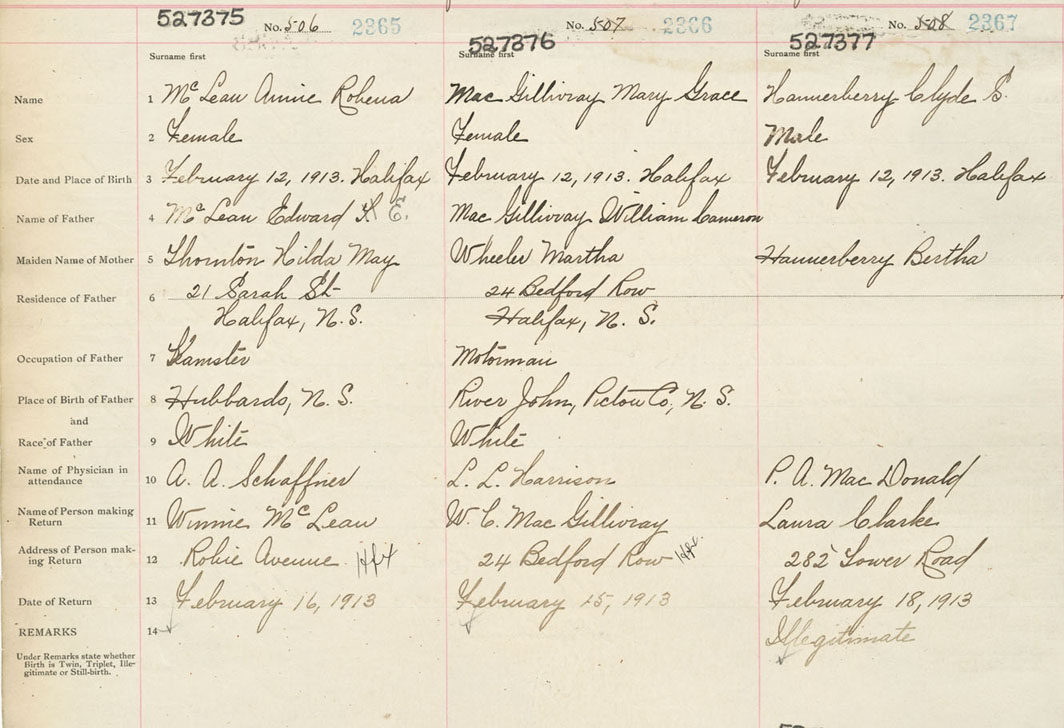 527375 No. 506 2365 527376 No. 507 2366 527377 No. 508 2367
Surname first Surname first Surname first
Name 1 Mc Lean Annie Robena Mac Gillivray Mary Grace Hannerberry Clyde S.
Sex 2 Female Female Male
Date and Place of Birth 3 February 12, 1913. Halifax February 12, 1913. Halifax February 12, 1913. Halifax
Name of Father 4 Mc Lean Edward E. Mac Gillivray William Cameron
Maiden Name of Mother 5 Thornton Hilda May Wheeler Martha Hannerberry Bertha
Residence of Father 6 21 Sarah St 24 Bedford Row
Halifax, N.S. Halifax, N.S.
Occupation of Father 7 Teamster Motorman
Place of Birth of Father 8 Hubbards, N.S. River John, Pictou Co, N.S.
and
Race of Father 9 White White
Name of Physician in
attendance 10 A. A. Schaffner L. L. Harrison P. A. Mac Donald
Name of Person making
Return 11 Winnie McLean W. C. Mac Gillivray Laura Clarke
Address of Person mak-
ing Return 12 Robie Avenue Hfx 24 Bedford Row Hfx. 282 Tower Road
Date of Return 13 February 16, 1913 February 15, 1913 February 18, 1913
REMARKS 14 Illegitimate
Under Remarks state whether
Birth is Twin, Triplet, Ille-
gitimate or Still-birth.